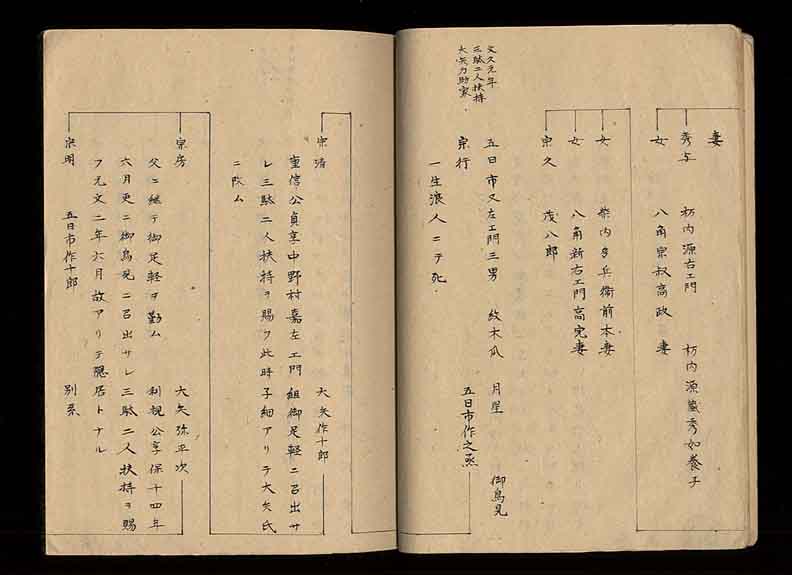 妻
秀与 栃内源右エ門 栃内源蔵秀如養子
女 八角宗叔高政 妻
女 柴内多兵衛前本妻
女 八角新右エ門高完妻
宗久 茂八郎
文久元年
三駄二人扶持
大矢力助家
五日市又左エ門三男 紋木瓜 月星 御鳥見
宗行 五日市作之丞
一生浪人ニテ死
宗清 大矢作十郎
重信公貞享中野村嘉左エ門組御足軽ニ召出サ
レ三駄二人扶持ヲ賜フ此時子細アリテ大矢氏
ニ改ム
宗房 大矢弥平次
父ニ継テ御足軽ヲ勤ム 利視公享保十四年
六月更ニ御鳥見ニ召出サレ三駄二人扶持ヲ賜
フ元文二年六月故アリテ隠居トナル
宗明 五日市作十郎 別系